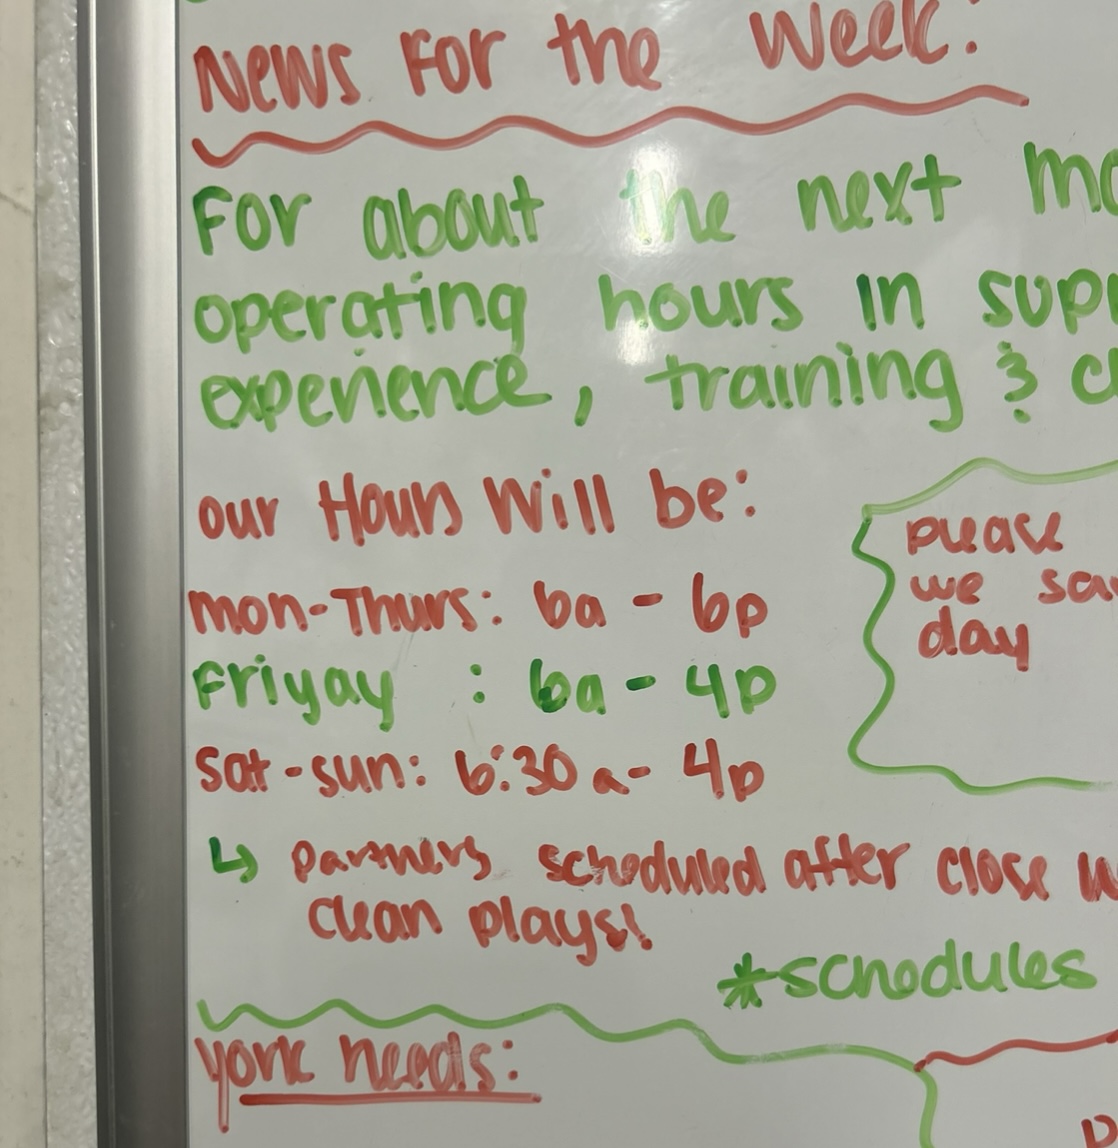 News For the Week:
For about the next mo
operating hours in supp
experience, training & cl
our Hours Will be:
mon-Thurs: 6a - 6p
Friyay : 6a - 4p
Sat-sun: 6:30a- 4p
↳ partners scheduled after close w
clean plays!
please
we sa
day
*schedules
york needs: